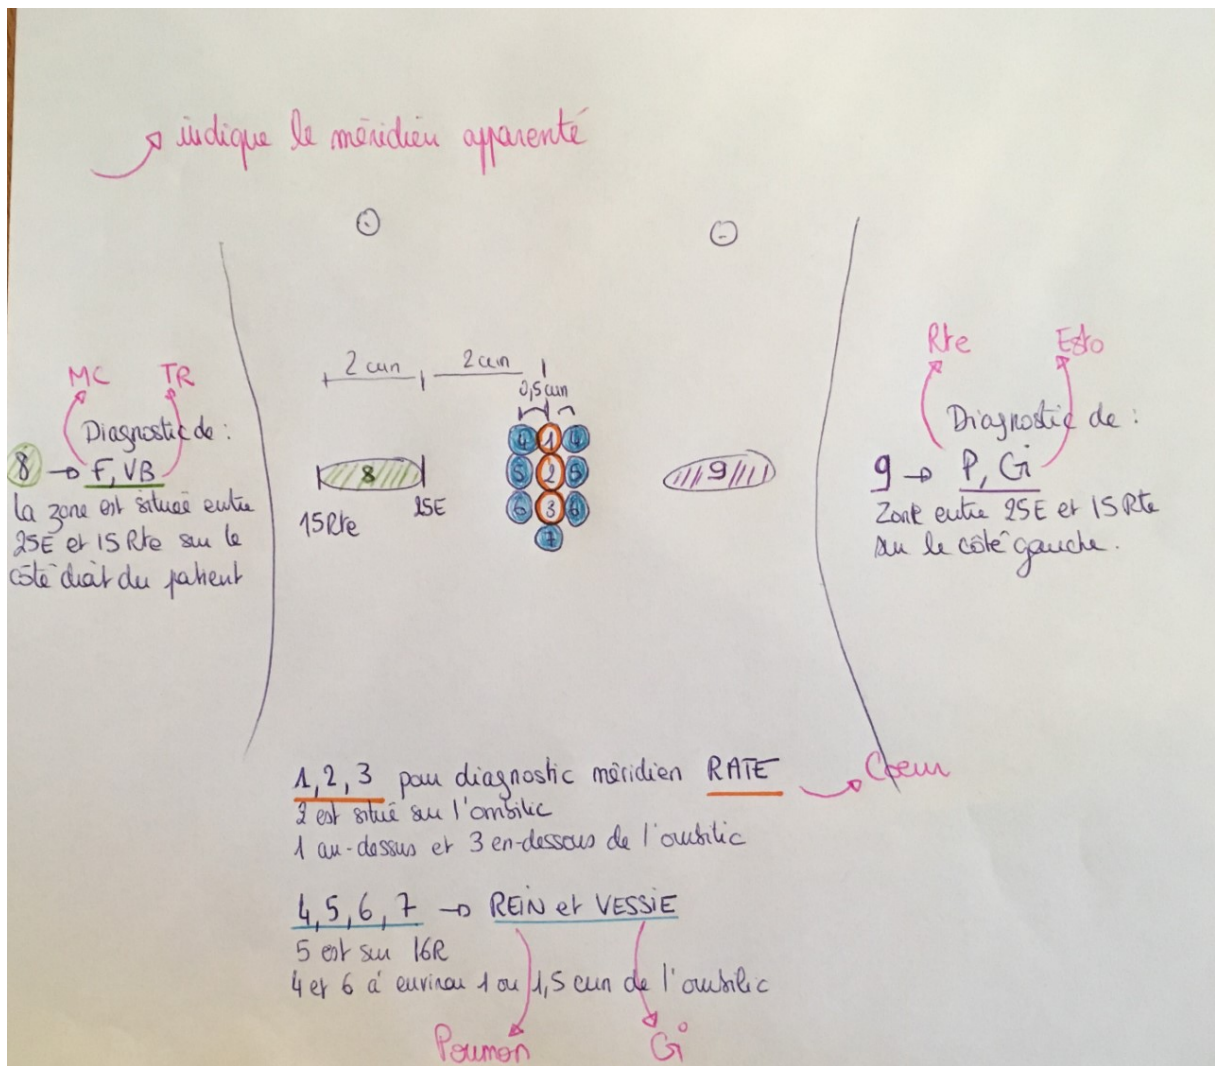 indique le méridien apparenté
2 cun
2 cun
0,5 cun
MC TR
Diagnostic de :
8 → F, VB
la zone est située entre
25E et 15 Rte sur le
côté droit du patient
4 1 4
5 2 5
6 3 6
7
8
15Rte
25E
9
Rte Esto
Diagnostic de :
9 → P, Gi
Zone entre 25E et 15 Rte
sur le côté gauche.
1, 2, 3 pour diagnostic méridien RATE
Coeur
2 est situé sur l'ombilic
1 au-dessus et 3 en-dessous de l'ombilic
4, 5, 6, 7 → REIN et VESSIE
5 est sur 16R
4 et 6 à environ 1 ou 1,5 cun de l'ombilic
Poumon
Gi